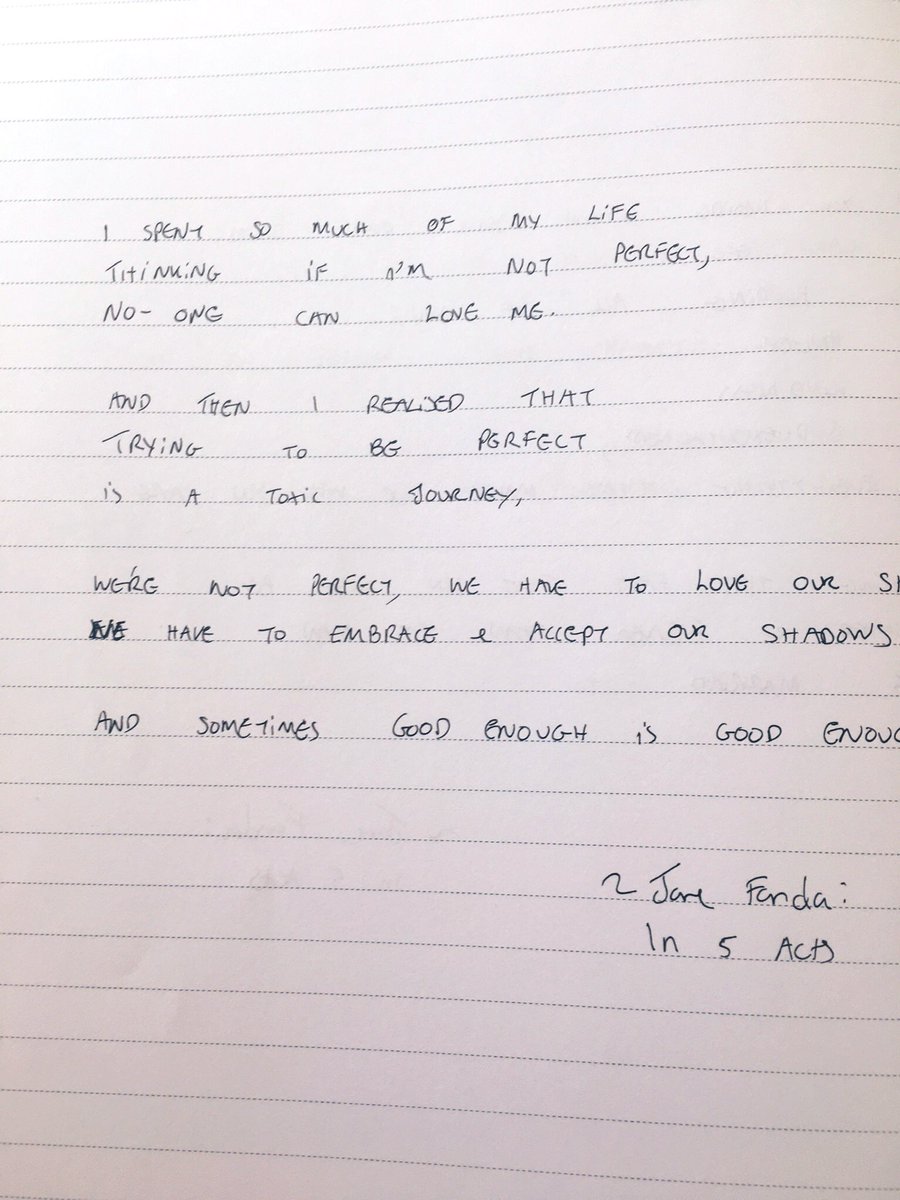 I SPENT SO MUCH OF MY LIFE
THINKING IF I'M NOT PERFECT,
NO-ONE CAN LOVE ME.
AND THEN I REALISED THAT
TRYING TO BE PERFECT
IS A TOXIC JOURNEY,
WE'RE NOT PERFECT, WE HAVE TO LOVE OUR SH
WE HAVE TO EMBRACE & ACCEPT OUR SHADOWS
AND SOMETIMES GOOD ENOUGH IS GOOD ENOUG
~ Jane Fonda:
In 5 Acts